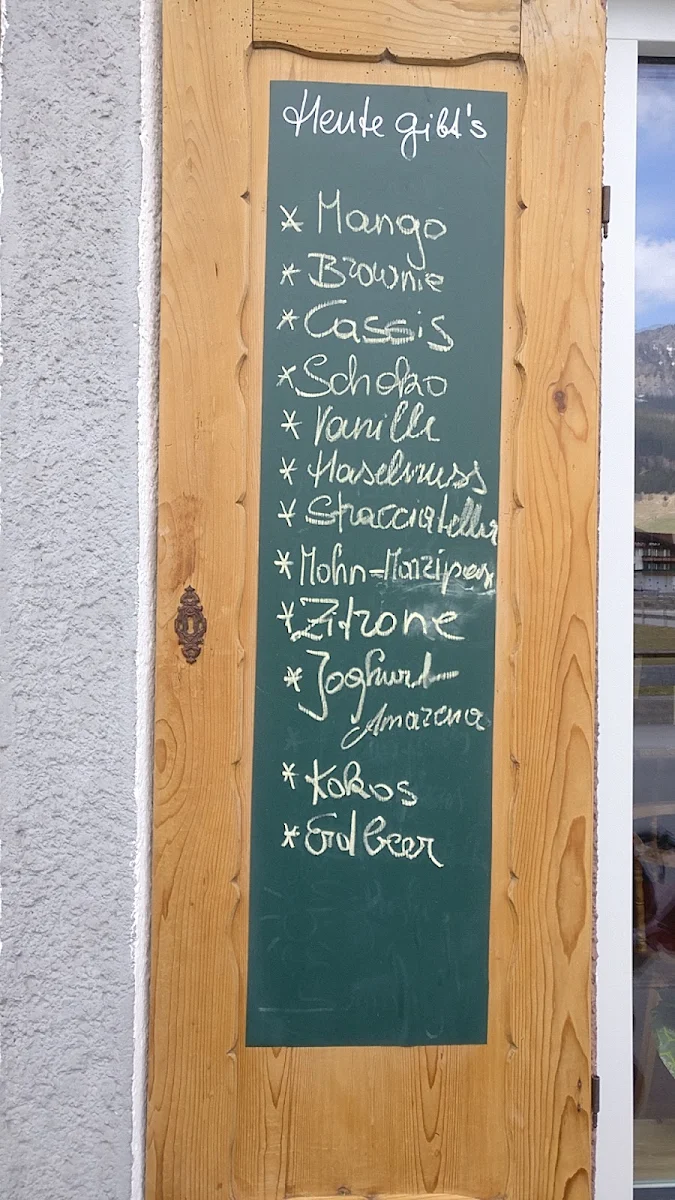 Heute gibt's
* Mango
* Brownie
* Cassis
* Schoko
* Vanille
* Haselnuss
* Stracciatella
* Mohn=Marzipan
* Zitrone
* Joghurt-
Amarena
* Kokos
* Erdbeer